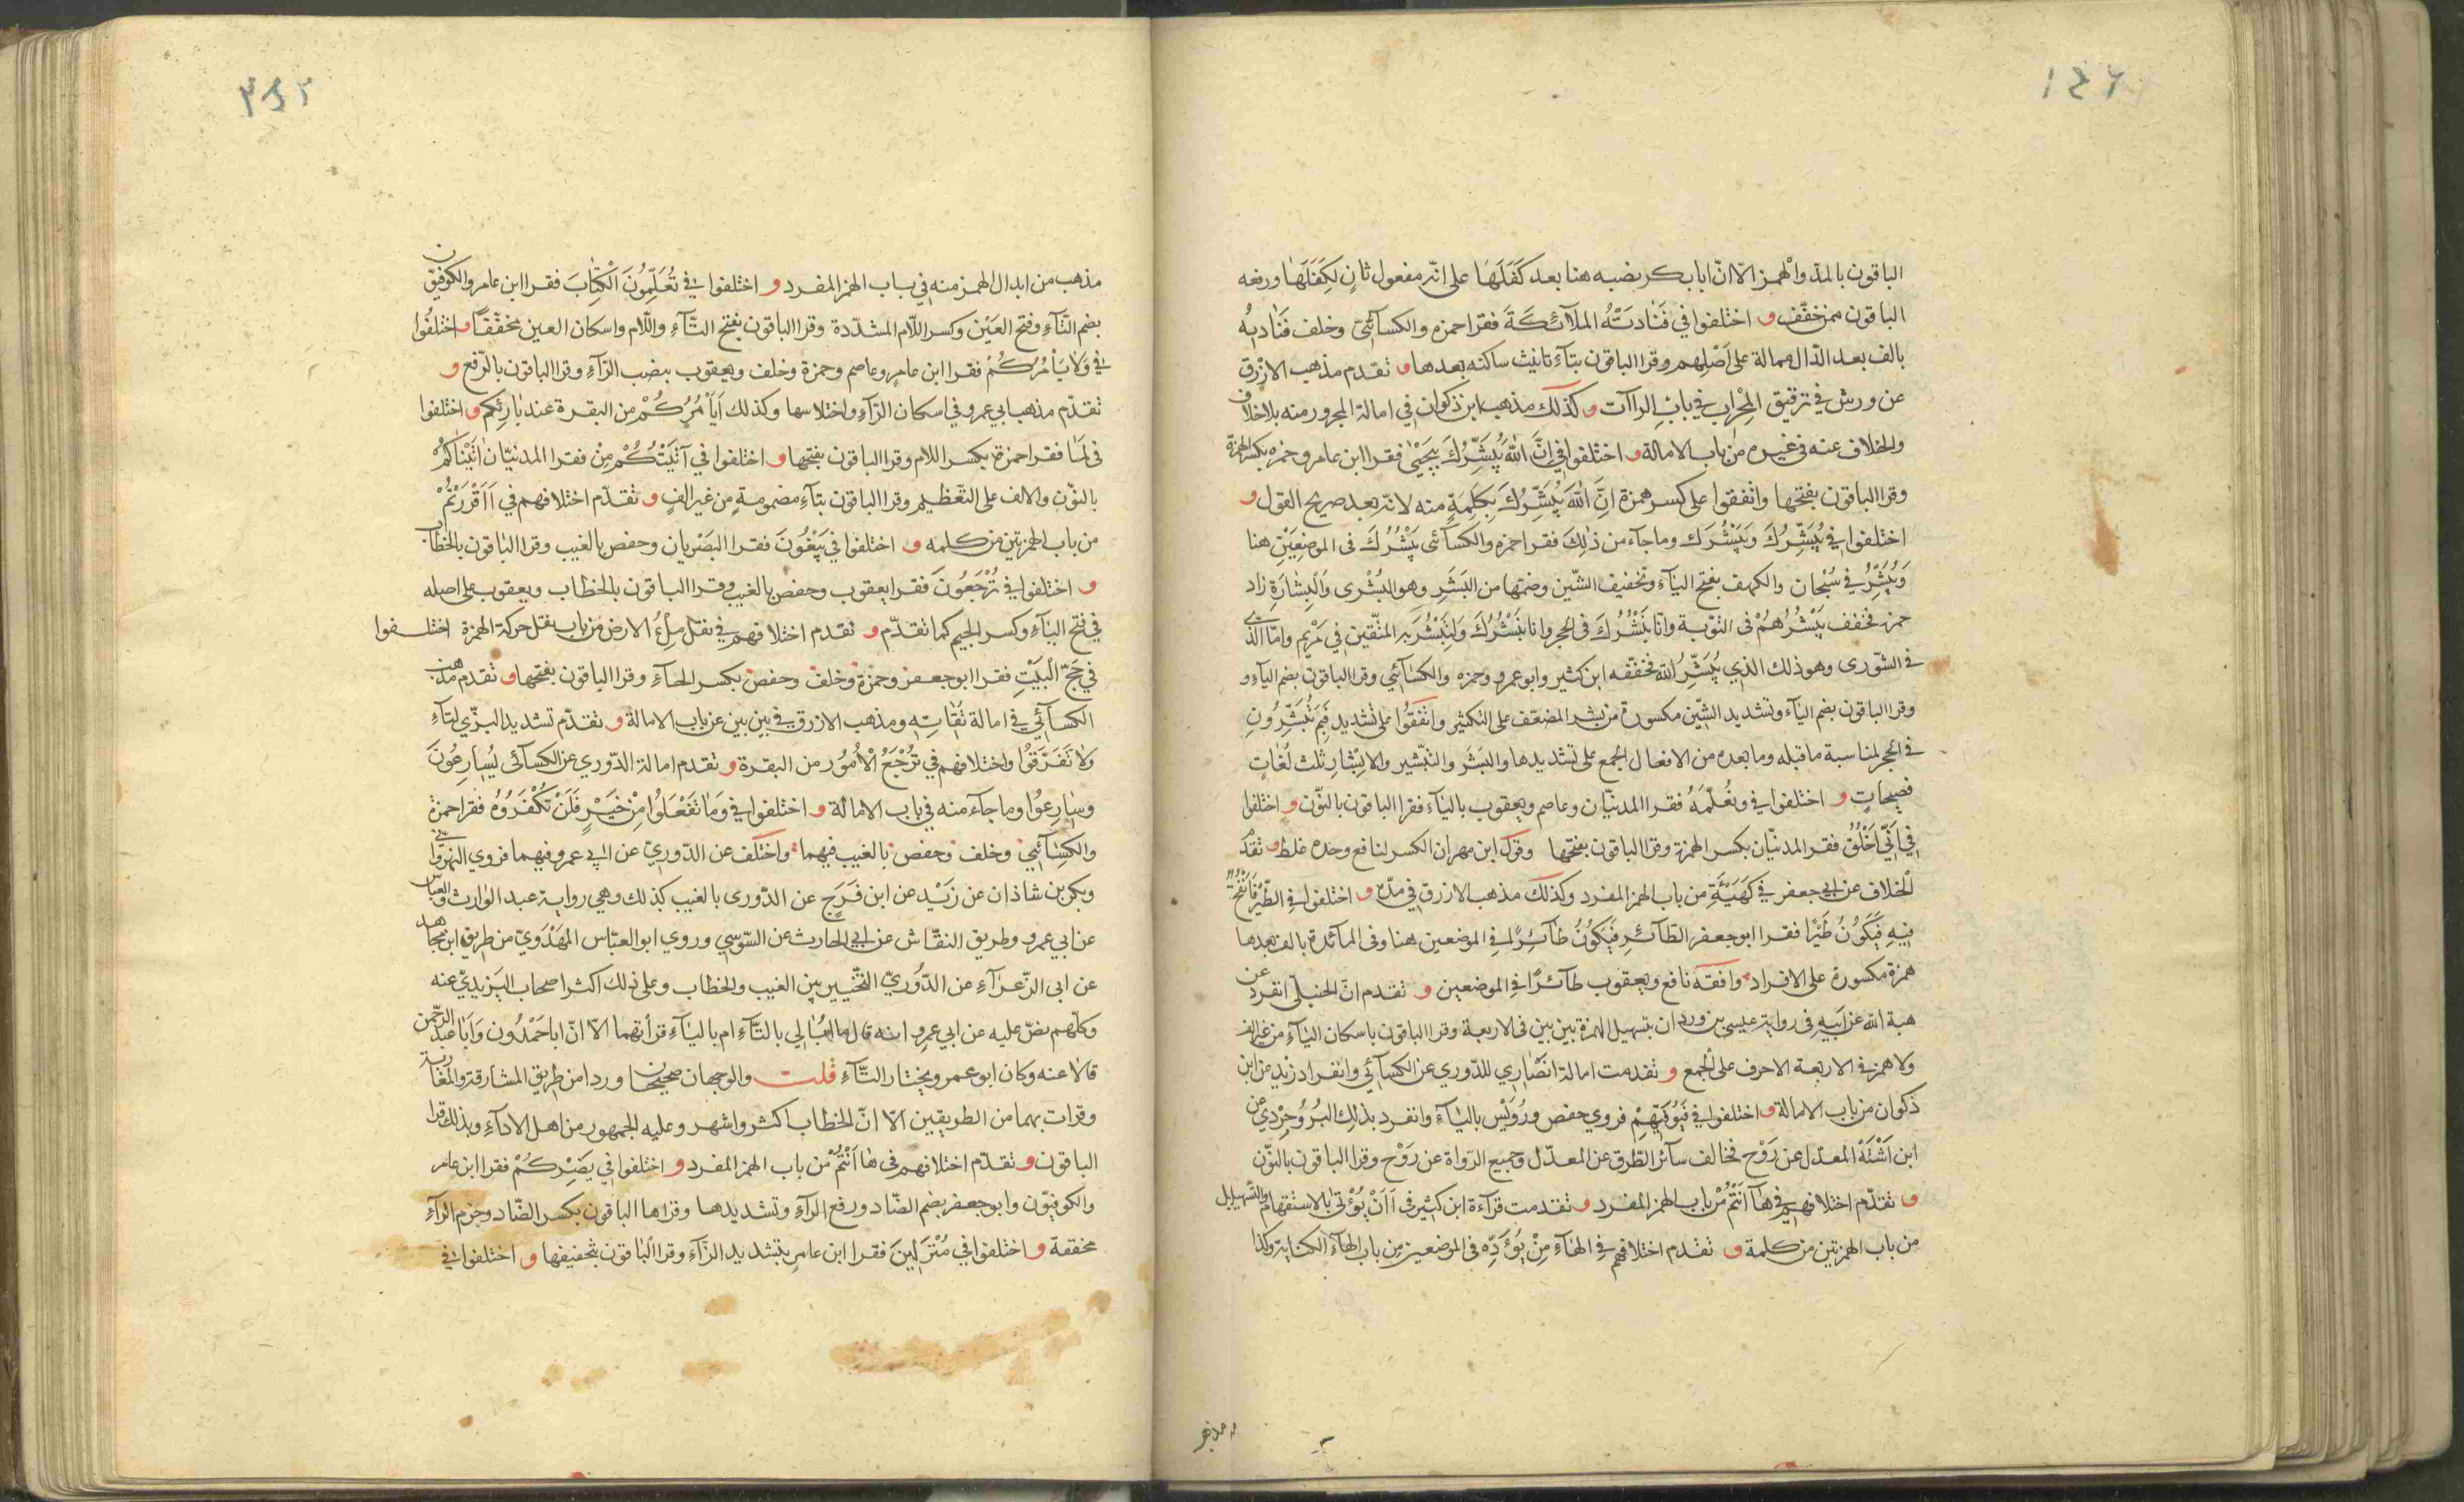 ١٤٦
الباقون بالمدّ والهمز الّا انّ ابابكر نصبه هنا بعد كَفَّلَهَا على انّه مفعول ثانٍ لِكَفَّلَهَا ورفعه
الباقون ممن خفّف و اختلفوا في فَنَادَتْهُ الملآئكَةَ فقرا حمزه والكسآئىّ وخلف فَنَاديهُ
بالف بعد الدّال ممالة على اَصْلِهم وقرا الباقون بتآءِ تانيث ساكنه بعدها و تقدم مذهب الازرق
عن ورش في ترقيق المِحْرابِ في بابِ الراآت و كذلك مذهب ابن ذكوان في امالة المجرور منه بلاخلاف
والخلاف عنه فى غيره من باب الامالة و اختلفوا في اِنَّ اللهَ يُبَشِّرُكَ بِيَحْيٰى فقرا ابن عامر وحمزه بكسر الهمزة
وقرا الباقون بفتحها واتّفقوا على كسر همزة اِنَّ اللهَ يُبَشِّرُكَ بِكَلِمَةٍ منه لانّه بعد صريح القول و
اختلفوا في يُبَشِّرُكَ وَنُبَشِّرُك وما جآء من ذٰلِكَ فقرا حمزه والكسآئى يَبْشُرُكَ فى الموضِعَيْنِ هنا
وَيُبَشِّرُ في سُبْحان والكهف بفتح اليآءِ وتخفيف الشّين وضمّها من البَشَرِ وهو البُشْرى وَالْبِشارَةِ زاد
حمزه فخفف يَبْشُرُهُمْ فى التوّبة وانّا نَبْشُرُكَ فى الحجر وانا نَبْشُرُكَ وَلِتَبْشُرَ به المتّقين في مَرْيم وامّا الّذي
في الشّورى وهو ذلك الذي يُبَشِّرُ الله فخفّفه ابن كثير وابو عمرو وحمزه والكسآئي وقرا الباقون بضم اليآءِ و
وقرا الباقون بضم اليآء وتشديد الشّين مكسورة من بشر المضعّف على التكثير واتّفَقُوا على تشديد فَبِمَ تُبَشِّرُونِ
في الحجر لمناسبة ما قبله وما بعده من الافعال الجمع على تشديدها والبَشَر والتّبشير والاِبْشار ثلث لُغَاتٍ
فصيحاتٍ و اختلفوا في ونُعَلِّمَهُ فقرا المدنيّان وعاصم ويعقوب باليآء فقرا الباقون بالنّون و اختلفوا
في اَنِّي اَخْلُقُ فقرا المدنيّان بكسر الهمزة وقرا الباقون بفتحها وقول ابن مهران الكسر لنافع وحده غلط و تقدّم
الْخلاف عن ابي جعفر في كَهَيْئَةِ من باب الهمز المفرد وكذلك مذهب الازرق في مدّه و اختلفوا في الطّيْرِ فَاَنْفُخُ
فيهِ فَيَكُونُ طَيْرًا فقرا ابو جعفر الطّآئرِ فَيَكُونُ طآئِرًا في الموضعين هنا وفى المآئدة بالف بعدها
همزة مكسورة على الافراد وافقه نافع ويعقوب طآئرًا في الموضعين و تقدم انّ الحنبلّى انفرد عن
هبة الله عن اَبيهِ فى رواية عيسى بن وردان بتسهيل الهمزة بين بين فى الاربعة وقرا الباقون باسكان اليآءِ من غير الف
ولا همز في الاربعة الاحرف على الْجمع و تقدمت امالة انصَارِي للدّوري عن الكسآئي وانفراد زيد عن ابن
ذكوان من باب الامالة و اختلفوا في فَيُوَفّيهِمْ فروي حفص ورُوَيْس باليآءِ وانفرد بذلِكَ البُرُوجِرْدي عن
ابن اَشْتَةَ المعدّل عن رَوْح فخالف سآئر الطّرق عن المعدّل وجميع الرّواة عن رَوْح وقرا الباقون بالنّون
و تقدّم اختلافهم في هَآ اَنْتُمْ من باب الهمز المفرد و تقدمت قرآءة ابن كثير فى ااَنْ يُؤْتى بالاستفهام والتّسهيل
من باب الهمزتين من كلمة و تقدم اختلافهم في الهآءِ مِنْ يُؤَدِّه فى الموضعين من باب الهآءِ الكناية وكذا
مذهب من ابدال الهمز منه في باب الهمز المفرد و اختلفوا في تُعَلِّمُونَ الْكِتَابَ فقرا ابن عامر والكوفيّون
بضم التّآءِ وفتح العَيْن وكسر اللّام المشدّدة وقرا الباقون بفتح التّآءِ واللّام واسكان العين مخفّفًا و اختلفُوا
في وَلَا يَأْمُرَكُمْ فقرا ابن عامرٍ وعاصم وحمزة وخلف ويعقوب بنصب الرّآءِ وقرا الباقون بالرّفع و
تقدّم مذهب ابي عمرو في اسكان الرّآءِ واختلاسها وكذلك اَيَأْمُرُكُمْ من البقرة عند بَارِئِكم و اختلفوا
فى لَمَا فقرا حمزة بكسر اللام وقرا الباقون بفتحها و اختلفوا في آتَيْتُكُمْ مِنْ فقرا المدنيّان اتَيْنَاكُمْ
بالنّون والالف على التعْظيم وقرا الباقون بتآءٍ مضمومةٍ من غير الفٍ و تقدّم اختلافهم في اَاَقْرَرْتُمْ
من باب الهمزتين من كلمه و اختلفوا في يَبْغُونَ فقرا البَصْريان وحفص بالغيب وقرا الباقون بالخطاب
و اختلفوا في تُرْجَعُونَ فقرا يعقوب وحفص بالغيب وقرا الباقون بالخطاب ويعقوب على اصله
في فتح اليآءِ وكسر الجيم كما تقدّم و تقدم اختلافهم في نقل مِلْءُ الارض من باب نقل حركة الهمزة اختلفوا
في حَجّ الْبَيْتِ فقرا ابو جعفر وحمزة وخلف وحفص بكسر الحآءِ وقرا الباقون بفتحها و تقدم مذهب
الكسآئي في امالة تُقَاتِهِ ومذهب الازرق في بين بين عن باب الامالة و تقدّم تشديد البزّي لتآءِ
وَلا تَفَرَّقُوا واختلافهم في تُرْجَعُ الْاُمُور من البقرة و تقدم امالة الدّوري عن الكسآئى يُسَارِعُونَ
وسَارِعُوا وما جآء منه في باب الامالة و اختلفوا في وَمَا تَفْعَلُوا مِنْ خَيْرٍ فَلَنْ تُكْفَرُوهُ فقرا حمزة
والكسآئيّ وخلف وحفص بالغيب فيهما واختلف عن الدّوريّ عن ابي عمرو فيهما فروي النهرواني
وبكر بن شاذان عن زَيْد عن ابن فَرَح عن الدّورى بالغيب كذلك وهي رواية عبد الوارث والعباس
عن ابي عمرو وطريق النقّاش عن ابي الحارث عن السّوسي وروي ابو العبّاس المهْدَويّ من طريق ابن مجاهد
عن ابى الزّعرآءِ عن الدُّوريّ التّخيير بين الغيب والخطاب وعلى ذلك اكثر اصحاب اليَزيديّ عنه
وكلّهم نصّ عليه عن ابي عمرو انه قال ما اُبالي بالتّآءِ ام باليآءِ قرأتهما الّا انّ ابا حَمْدُون وَاَبا عبد الرّحمن
قالا عنه وكان ابو عمرو يختار التّآءِ قلت والوجهان صحيحان وردا من طريق المشارقة والمغاربة
وقرات بهما من الطريقين الّا انّ الخطاب اكثر واشهر وعليه الجمهور من اهل الادآءِ وبذلك قرا
الباقون و تقدّم اختلافهم فى ها اَنْتُمْ من باب الهمز المفرد و اختلفوا في يَضِرْكُمْ فقرا ابن عامر
والكوفيّون وابو جعفر بضم الضّاد ورفع الرّآءِ وتشديدها وقراها الباقون بكسر الضّاد وجزم الرّآءِ
مخففة و اختلفوا في مُنْزَلينَ فقرا ابن عامرٍ بتشديد الزّآءِ وقرا الْباقون بتخفيفها و اختلفوا في